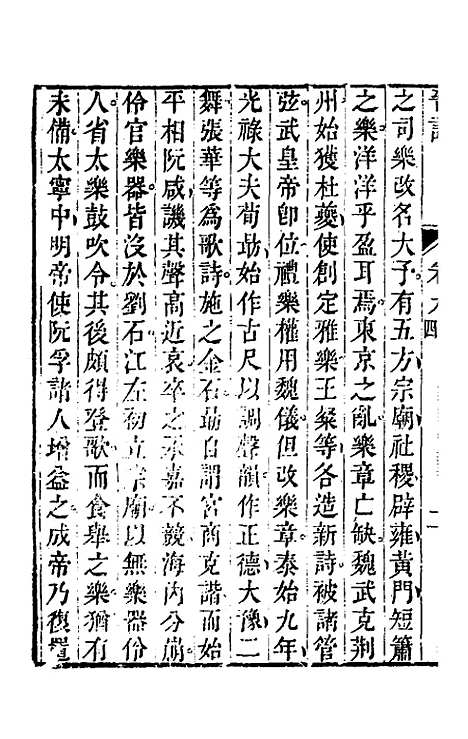 晉記
卷六四
之司樂改名大予有五方宗廟社稷辟雍黃門短簫
之樂洋洋乎盈耳焉東京之亂樂章亡缺魏武克荆
州始獲杜夔使創定雅樂王粲等各造新詩被諸管
弦武皇帝卽位禮樂權用魏儀但改樂章泰始九年
光祿大夫荀勗始作古尺以調聲韻作正德大豫二
舞張華等爲歌詩施之金石勗自謂宮商克諧而始
平相阮咸譏其聲高近哀卒之永嘉不競海內分崩
伶官樂器皆沒於劉石江左初立宗廟以無樂器伶
人省太樂鼓吹令其後頗得登歌而食舉之樂猶有
未備太寧中明帝使阮孚諸人增益之成帝乃復置